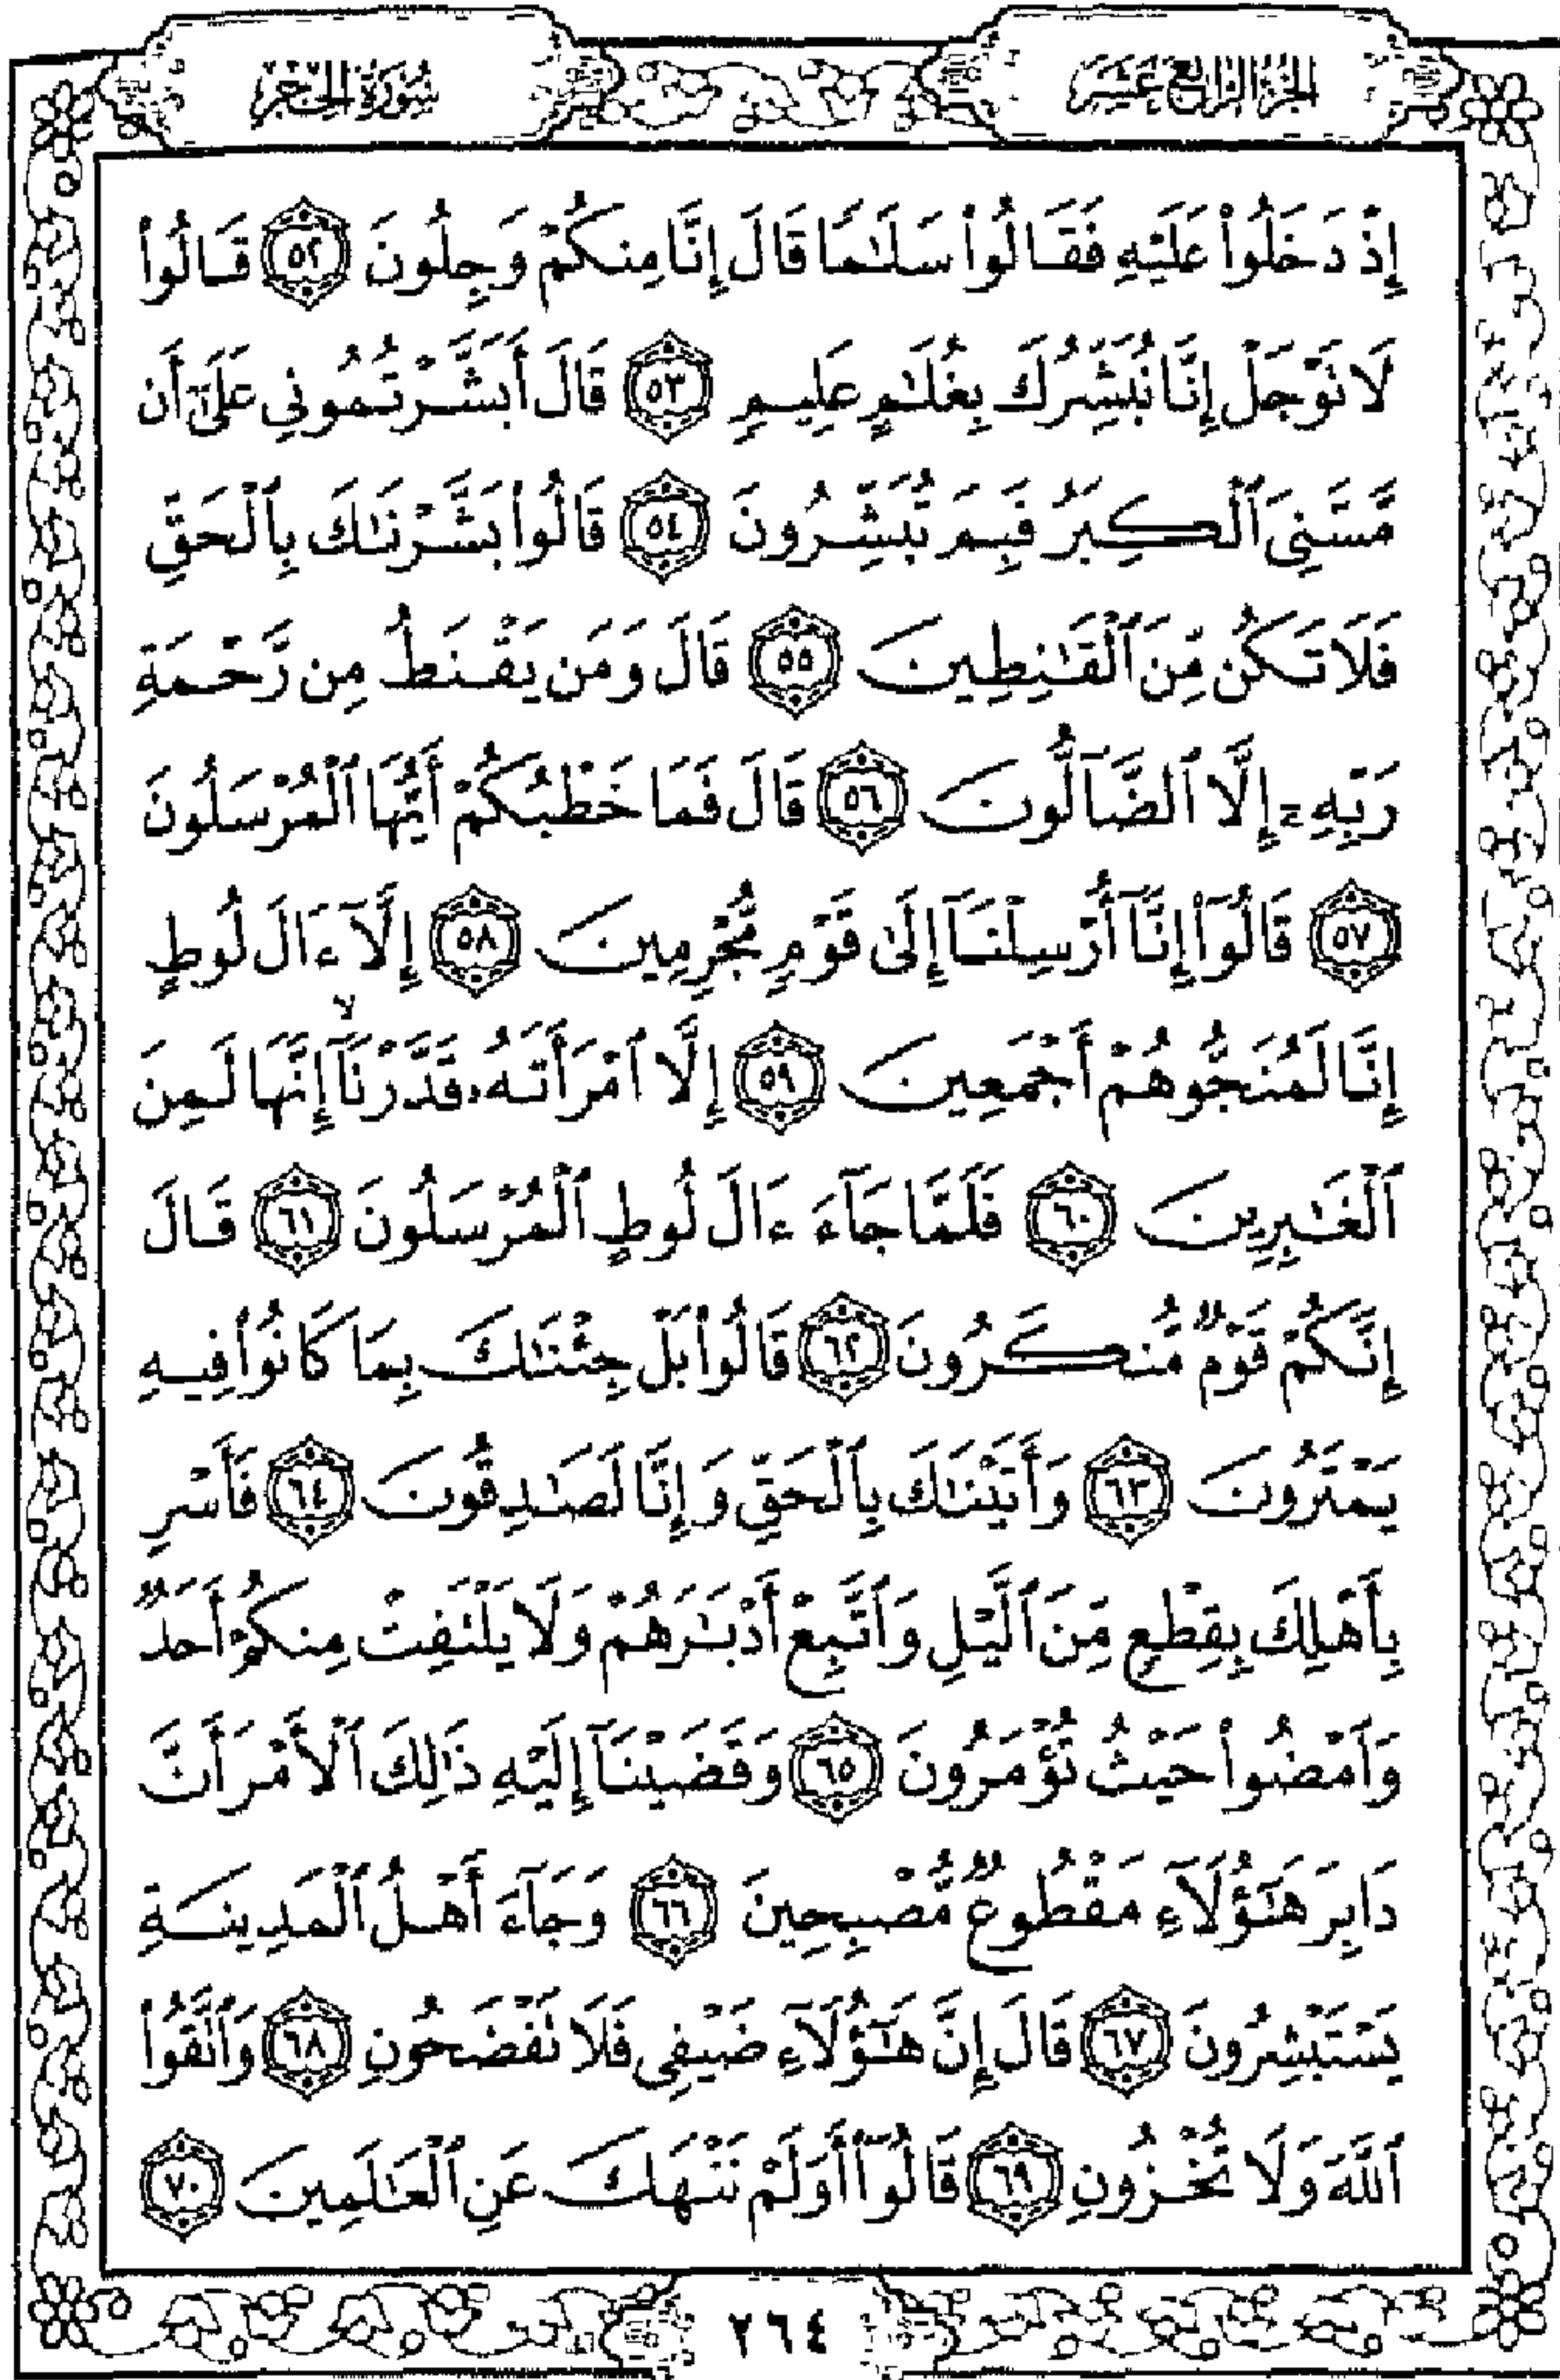 الجزء الرابع عشر
سورة الحجر
إِذْ دَخَلُوا۟ عَلَيْهِ فَقَالُوا۟ سَلَٰمًا قَالَ إِنَّا مِنكُمْ وَجِلُونَ ٥٢ قَالُوا۟
لَا تَوْجَلْ إِنَّا نُبَشِّرُكَ بِغُلَٰمٍ عَلِيمٍ ٥٣ قَالَ أَبَشَّرْتُمُونِى عَلَىٰٓ أَن
مَّسَّنِىَ ٱلْكِبَرُ فَبِمَ تُبَشِّرُونَ ٥٤ قَالُوا۟ بَشَّرْنَٰكَ بِٱلْحَقِّ
فَلَا تَكُن مِّنَ ٱلْقَٰنِطِينَ ٥٥ قَالَ وَمَن يَقْنَطُ مِن رَّحْمَةِ
رَبِّهِۦٓ إِلَّا ٱلضَّآلُّونَ ٥٦ قَالَ فَمَا خَطْبُكُمْ أَيُّهَا ٱلْمُرْسَلُونَ
٥٧ قَالُوٓا۟ إِنَّآ أُرْسِلْنَآ إِلَىٰ قَوْمٍ مُّجْرِمِينَ ٥٨ إِلَّآ ءَالَ لُوطٍ
إِنَّا لَمُنَجُّوهُمْ أَجْمَعِينَ ٥٩ إِلَّا ٱمْرَأَتَهُۥ قَدَّرْنَآ ۙ إِنَّهَا لَمِنَ
ٱلْغَٰبِرِينَ ٦٠ فَلَمَّا جَآءَ ءَالَ لُوطٍ ٱلْمُرْسَلُونَ ٦١ قَالَ
إِنَّكُمْ قَوْمٌ مُّنكَرُونَ ٦٢ قَالُوا۟ بَلْ جِئْنَٰكَ بِمَا كَانُوا۟ فِيهِ
يَمْتَرُونَ ٦٣ وَأَتَيْنَٰكَ بِٱلْحَقِّ وَإِنَّا لَصَٰدِقُونَ ٦٤ فَأَسْرِ
بِأَهْلِكَ بِقِطْعٍ مِّنَ ٱلَّيْلِ وَٱتَّبِعْ أَدْبَٰرَهُمْ وَلَا يَلْتَفِتْ مِنكُمْ أَحَدٌ
وَٱمْضُوا۟ حَيْثُ تُؤْمَرُونَ ٦٥ وَقَضَيْنَآ إِلَيْهِ ذَٰلِكَ ٱلْأَمْرَ أَنَّ
دَابِرَ هَٰٓؤُلَآءِ مَقْطُوعٌ مُّصْبِحِينَ ٦٦ وَجَآءَ أَهْلُ ٱلْمَدِينَةِ
يَسْتَبْشِرُونَ ٦٧ قَالَ إِنَّ هَٰٓؤُلَآءِ ضَيْفِى فَلَا تَفْضَحُونِ ٦٨ وَٱتَّقُوا۟
ٱللَّهَ وَلَا تُخْزُونِ ٦٩ قَالُوٓا۟ أَوَلَمْ نَنْهَكَ عَنِ ٱلْعَٰلَمِينَ ٧٠
٢٦٤